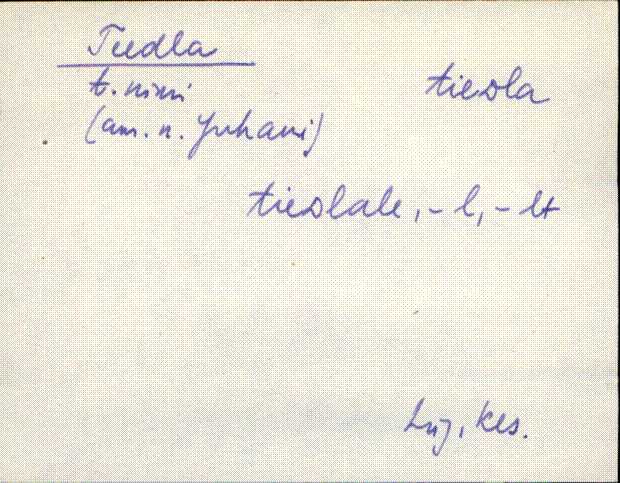 Teedla
t. nimi
(am. n. Juhani)
tieᴅla
tieᴅlale, -l, -lt
Kes.